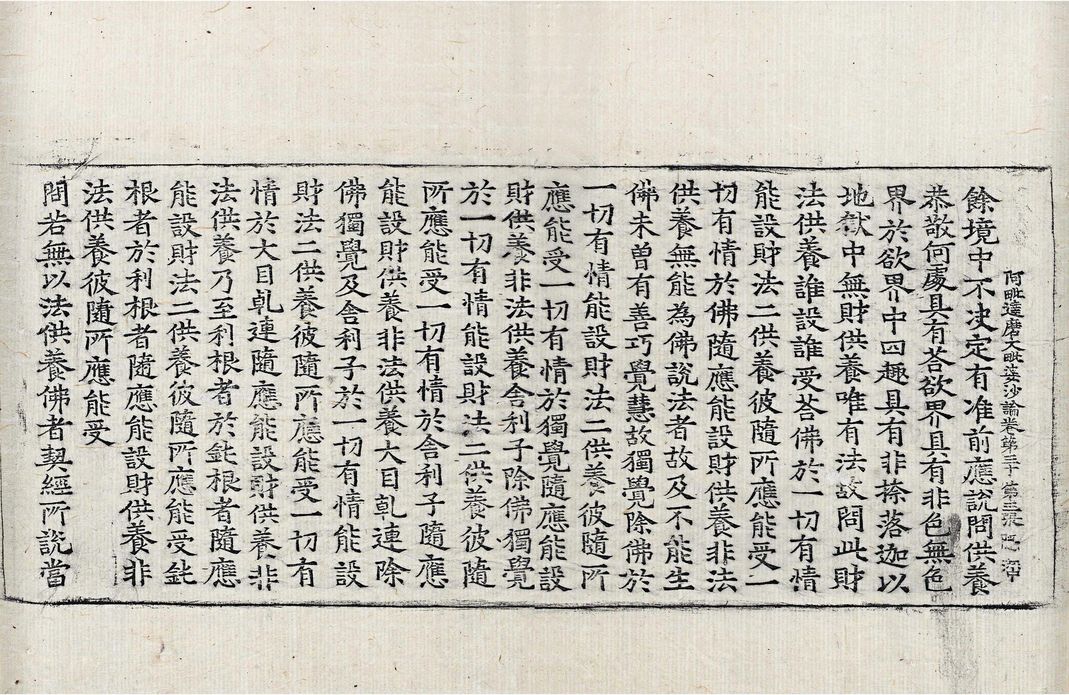 阿毗達磨大毗婆沙論卷第三十 第三張
餘境中不决定有准前應說問供養
恭敬何處具有荅欲界具有非色無色
界於欲界中四趣具有非捺落迦以
地獄中無財供養唯有法故問此財
法供養誰設誰受荅佛於一切有情
能設財法二供養彼隨所應能受一
切有情於佛隨應能設財供養非法
供養無能為佛說法者故及不能生
佛未曾有善巧覺慧故獨覺除佛於
一切有情能設財法二供養彼隨所
應能受一切有情於獨覺隨應能設
財供養非法供養舍利子除佛獨覺
於一切有情能設財法二供養彼隨
所應能受一切有情於舍利子隨應
能設財供養非法供養大目乹連除
佛獨覺及舍利子於一切有情能設
財法二供養彼隨所應能受一切有
情於大目乹連隨應能設財供養非
法供養乃至利根者於鈍根者隨應
能設財法二供養彼隨所應能受鈍
根者於利根者隨應能設財供養非
法供養彼隨所應能受
問若無以法供養佛者契經所說當